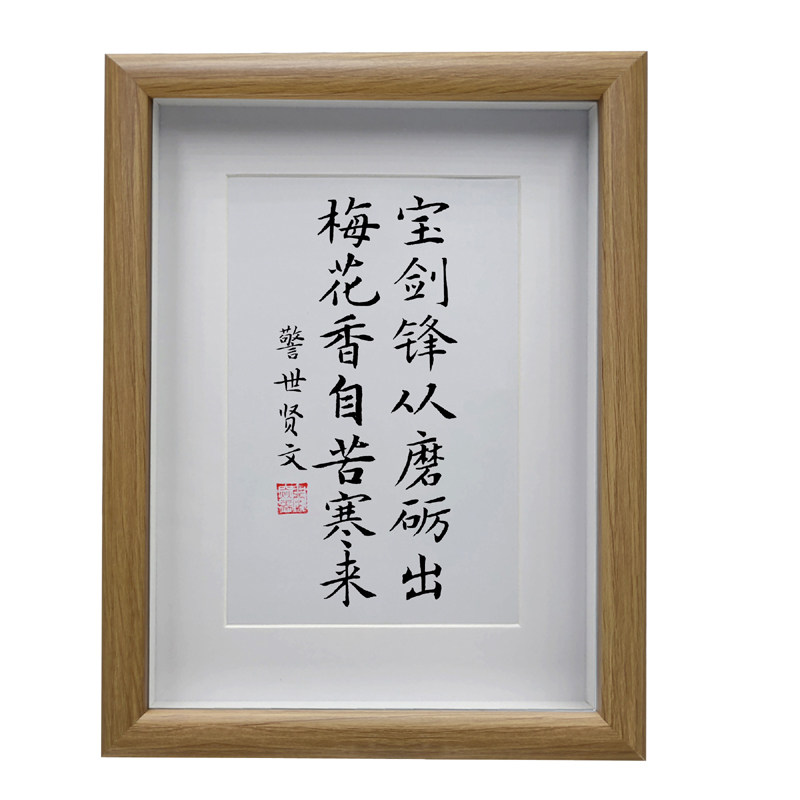 宝剑锋从磨砺出
梅花香自苦寒来
警世贤文